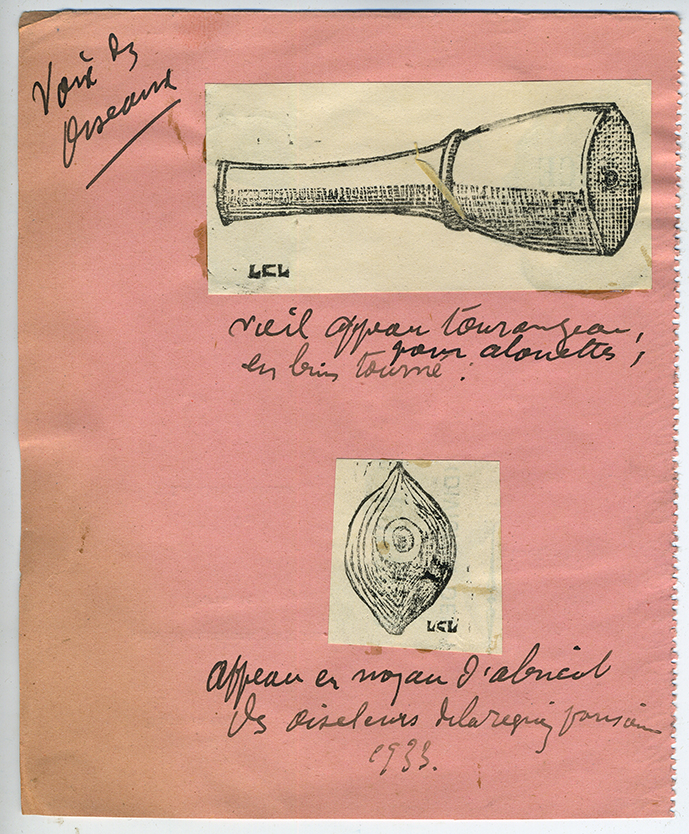 Voix des
Oiseaux
LCL
vieil appeau tourangeau,
pour alouettes,
en bois tourné.
LCL
appeau en noyau d'abricot
des oiseleurs de la région parisien
1933.